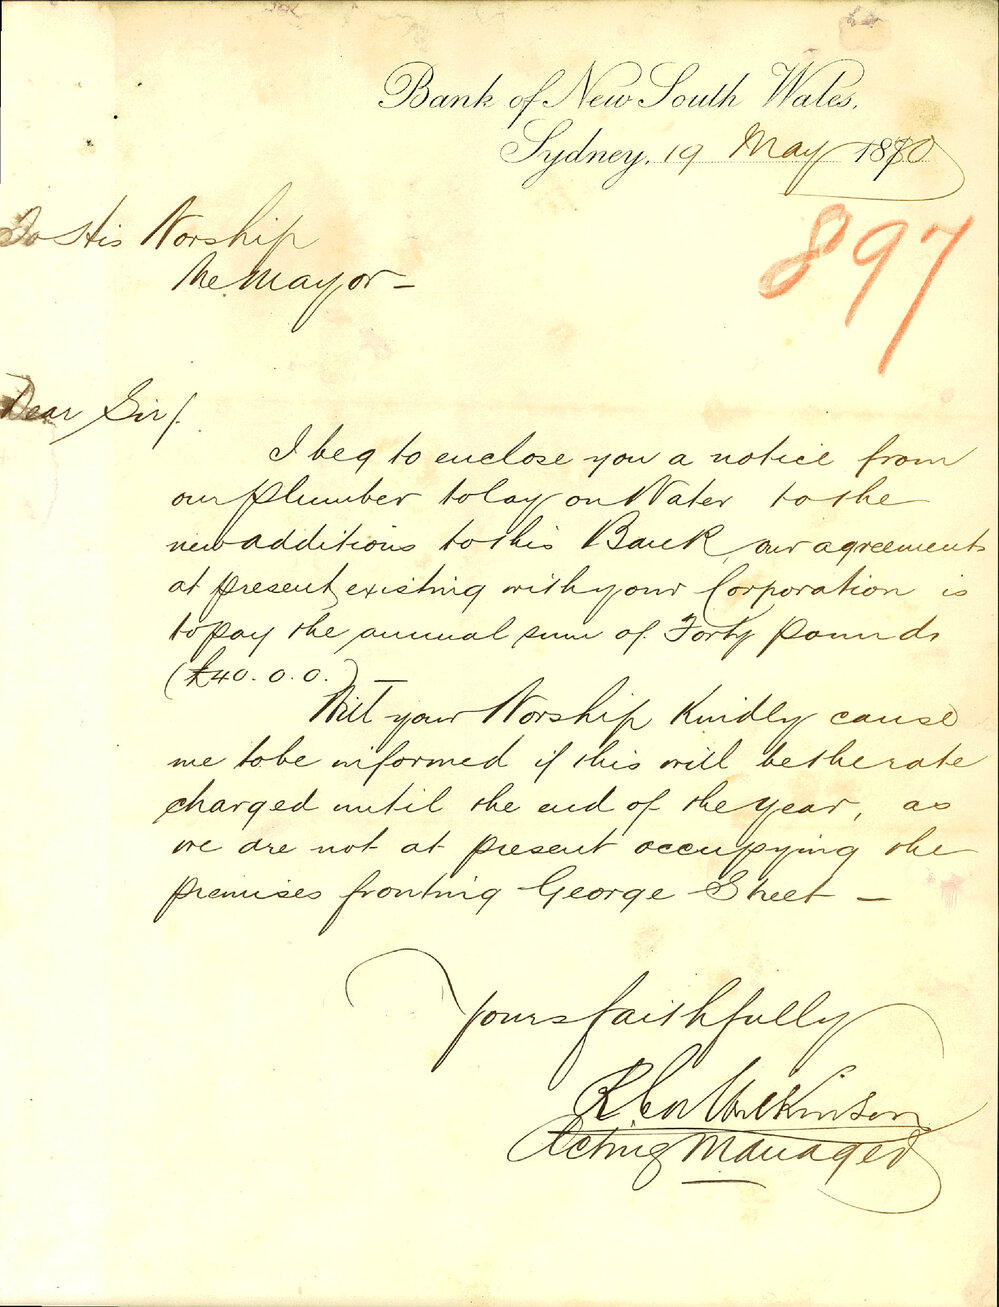 Bank of New South Wales,
Sydney, 19 May 1880
897
To His Worship
The Mayor —
Dear Sir/.
I beg to enclose you a notice from
our plumber to lay on Water to the
new additions to this Bank, our agreement
at present existing with your Corporation is
to pay the annual sum of Forty pounds
(£40.0.0.) —
Will your Worship Kindly cause
me to be informed if this will be the rate
charged until the end of the year, as
we are not at present occupying the
premises fronting George Street —
Yours faithfully
Wilkinson
Acting Manager